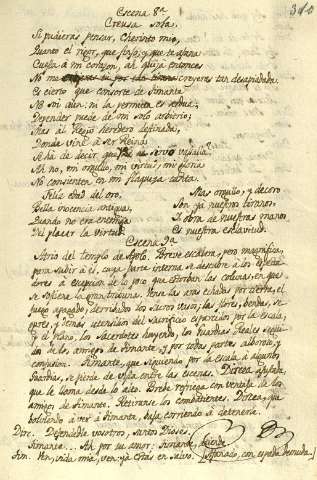 310
Escena 8ª
Creusa sola.
Si pudieras pensar, Cherinto mio,
Quanto el rigor, que finjo, y que te afana
Cuesta à mi corazon, ah quizà entonces
No me creyeras tan despiadada.
Es cierto que consorte de Timante
No soi aun: ni la permuta es
Depender puede de mi solo arbitrio;
Mas al Regio heredero destinada,
Donde vine à ser Reina
Se ha de decir que
Ah no, mi orgullo, mi virtud, mi gloria
No consienten en mi flaqueza tanta.
Feliz edad del oro,
Bella inocencia antigua,
Quando no era enemiga
Del placer la virtud.
Mas orgullo, y decoro
Son ya nuestros tiranos
I obra de nuestras manos
Es nuestra esclavitud.
Escena 9ª
Atrio del templo de Apolo. Breve escalera, pero magnifica,
para subir à el, cuya parte interna se descubre à los Especta-
dores à excepcion de lo que estorban las colunas en que
se sostiene la gran tribuna. Vense las aras echadas por tierra, el
fuego apagado, derribados los sacros vasos, las flores, bendas, se-
gures, y demas utensilios del Sacrificio esparcidos por la escala,
y el plano, los Sacerdotes huyendo, los Guardias Reales segui-
dos de los amigos de Timante, y por todas partes alboroto, y
confusion. Timante, que siguiendo por la escala à algunos
Guardias, se pierde de vista entre las escenas. Dircea asustada,
que le llama desde lo alto. Breve refriega con ventaja de los
amigos de Timante. Retiranse los combatientes. Dircea, que
bolviendo à ver à Timante, baja corriendo à detenerle.
Dirc. Defendedle vosotros, santos Dioses.
Timante.... Ah por su amor: Timante,
Tim. Ven, vida mia, ven: ya estas en salvo. (Afanado, con espada desnuda.